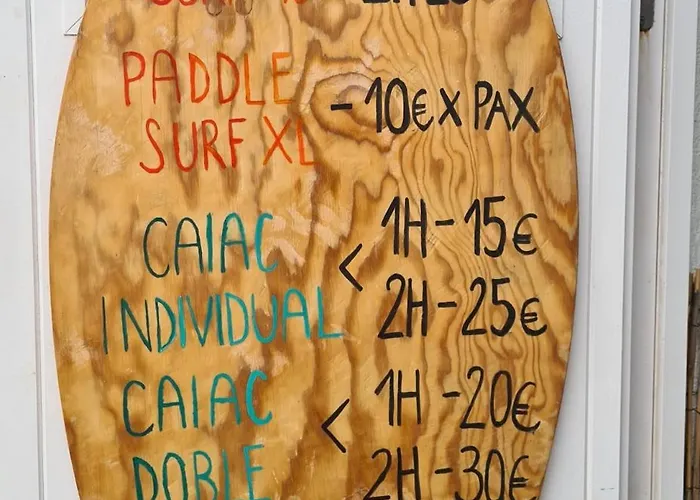 PADDLE
SURF XL
-10€ X PAX
CAIAC
INDIVIDUAL
< 1H-15€
2H-25€
CAIAC
DOBLE
< 1H-20€
2H-30€